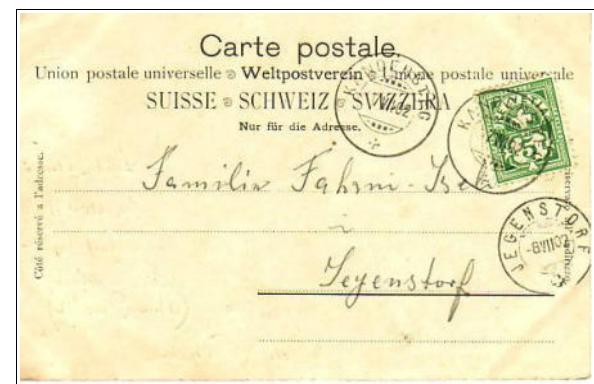 Carte postale.
Union postale universelle Weltpostverein Unione postale universale
SUISSE SCHWEIZ SVIZZERA
Nur für die Adresse.
KANDERSTEG
VII.02
Côté réservé à l'adresse.
Familie Fahrni-
i
Jegenstorf
JEGENSTORF
-8VII02